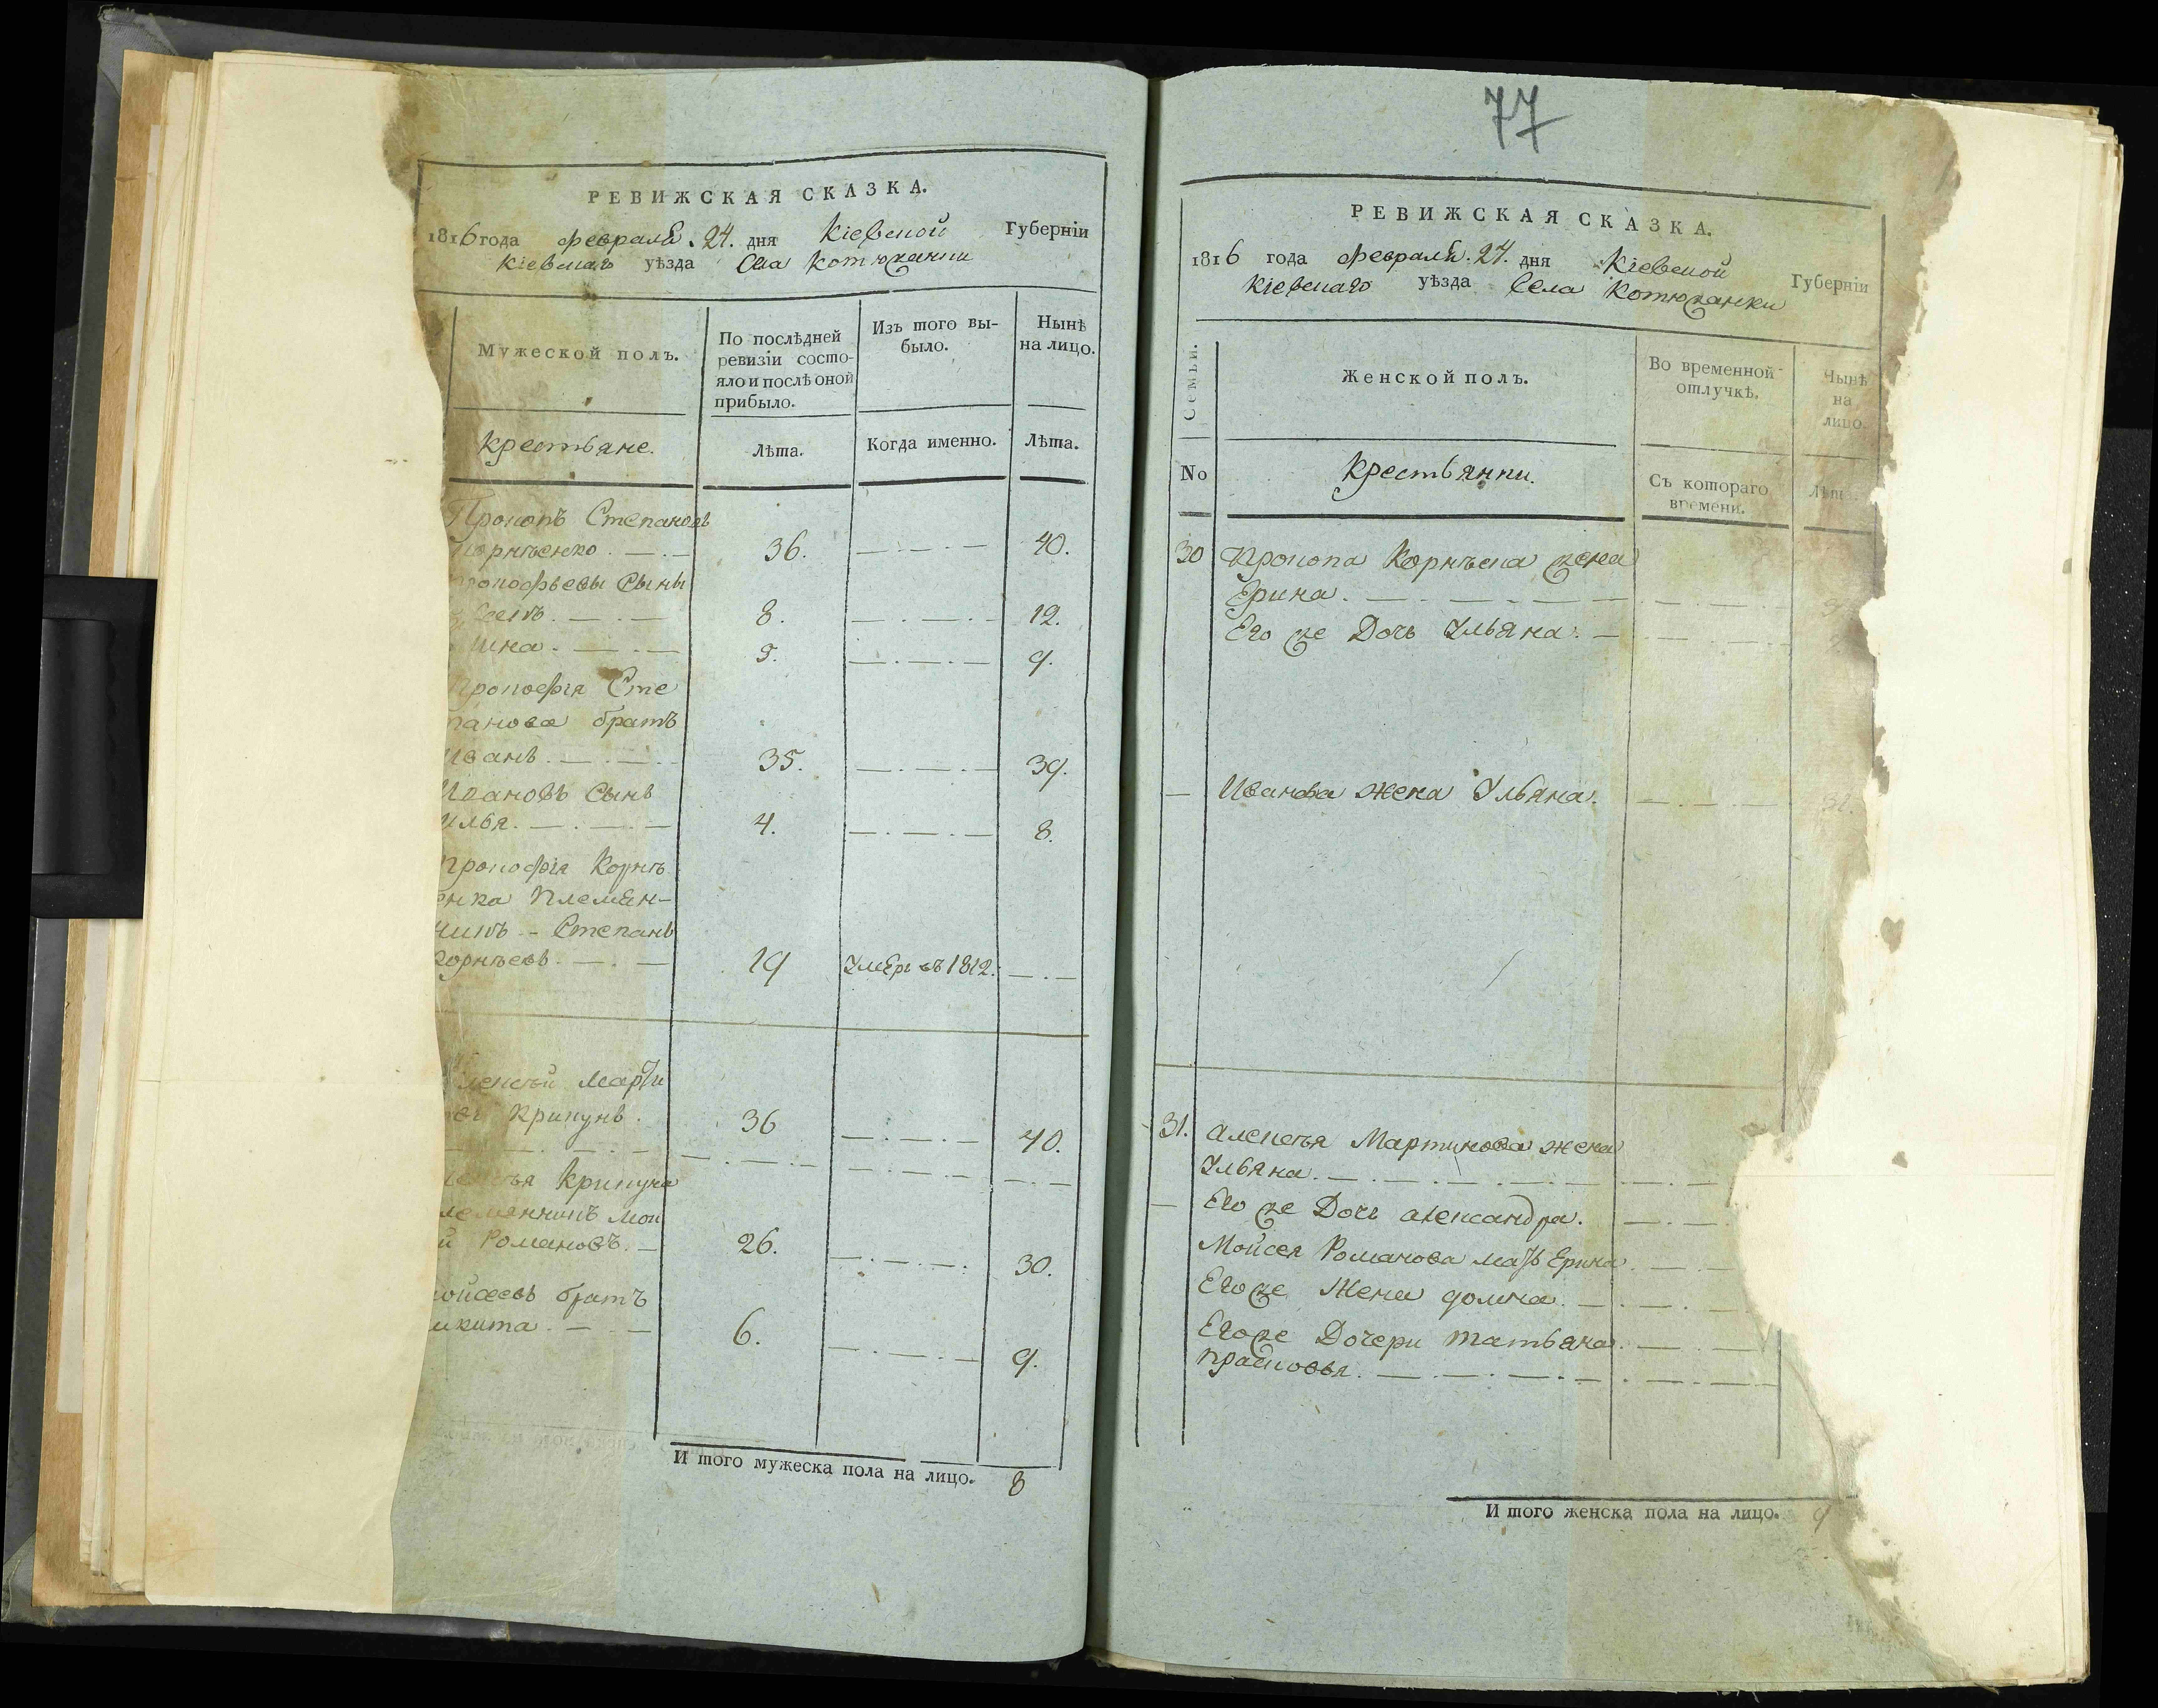 РЕВИЖСКАЯ СКАЗКА.
1816 года февраля. 24. дня Кіевской Губерніи
Кіевскаго уѣзда Села Котюжанки
Мужеской полъ.
По послѣдней ревизіи состо-
яло и послѣ оной прибыло.
Изъ того вы-
было.
Нынѣ
на лицо.
Крестьяне.
Лѣта.
Когда именно.
Лѣта.
Прокопъ Степановъ
Корнѣенко. 36. 40.
Прокофьевы Сыны
8. 12.
5. 9.
Прокофія Сте
панова братъ
Иванъ. 35. 39.
Ивановъ Сынъ
Илья. 4. 8.
Прокофія Корнѣ
енка Племян-
никъ - Степанъ
Корнѣевъ. 19 Умеръ въ 1812.
Алексѣй Марти
Крикунъ. 36 40.
Крикуна
племянникъ Мои
й Романовъ. 26. 30.
Мойсеевъ братъ
икита. 6. 9.
И того мужеска пола на лицо. 8
77
РЕВИЖСКАЯ СКАЗКА.
1816 года февраля. 24. дня Кіевской Губерніи
Кіевскаго уѣзда Села Котюжанки
Семьи.
Женской полъ.
Во временной
отлучкѣ.
Нынѣ
на
лицо.
No
Крестьянки.
Съ котораго
времени.
Лѣта.
30 Прокопа Корнѣенка жена
Ерина.
Его же Дочь Ульяна.
Иванова жена Ульяна.
31. Алексѣя Мартинова жена
Ульяна.
Его же Дочь александра.
Мойсея Романова мать Ерина.
Его же Жена домна.
Его же Дочери татьяна.
прасковья.
И того женска пола на лицо. 9